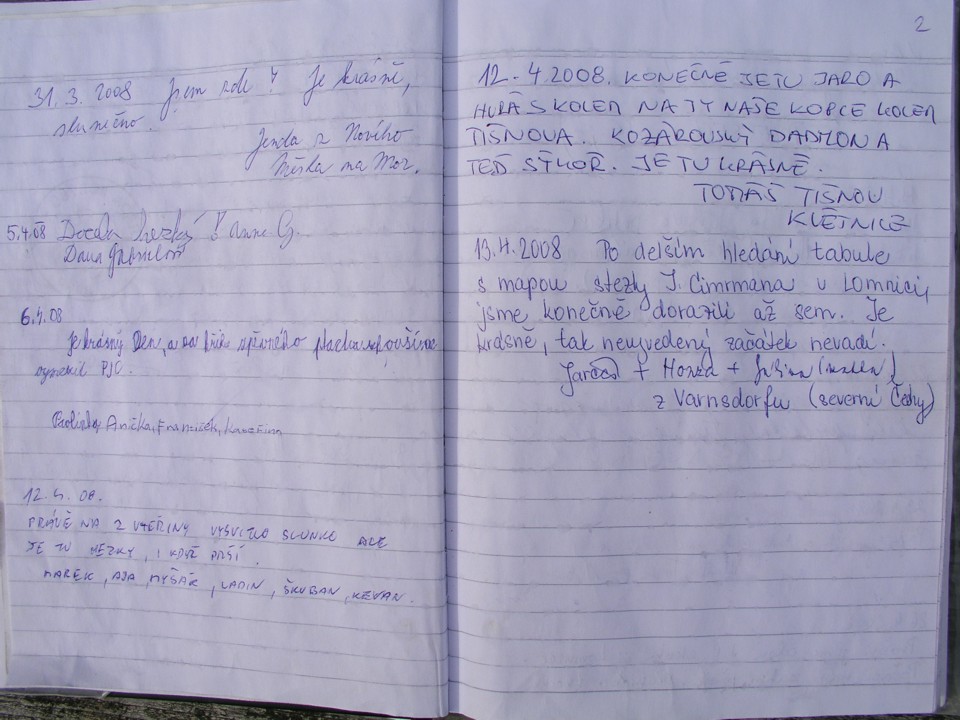 31.3.2008 Jsem zde! Je krásně,
slunečno.
Jenda z Nového
Města na Mor.
5.4.08 Docela hezký! Anna G.
Dana
6.4.08
Je krásný Den, a na
PJC.
Anička, František, Kateřina
12.4.08.
PRÁVĚ NA 2 VTEŘINY VYSVITLO SLUNKO ALE
JE TU HEZKY, I KDYŽ PRŠÍ.
MAREK, AJA, MYŠÁK, LADIN, ŠKUBAN, KEVAN.
2
12.4.2008. KONEČNĚ JE TU JARO A
HURÁ S KOLEM NA TY NAŠE KOPCE KOLEM
TIŠNOVA. A
TEĎ SÝKOŘ. JE TU KRÁSNĚ.
TOMÁŠ TIŠNOV
KVĚTNICE
13.4.2008 Po delším hledání tabule
s mapou stezky J. Cimrmana v Lomnici,
jsme konečně dorazili až sem. Je
krásně, tak neuvedený začátek nevadí.
+ Honza +
z Varnsdorfu (severní Čechy)